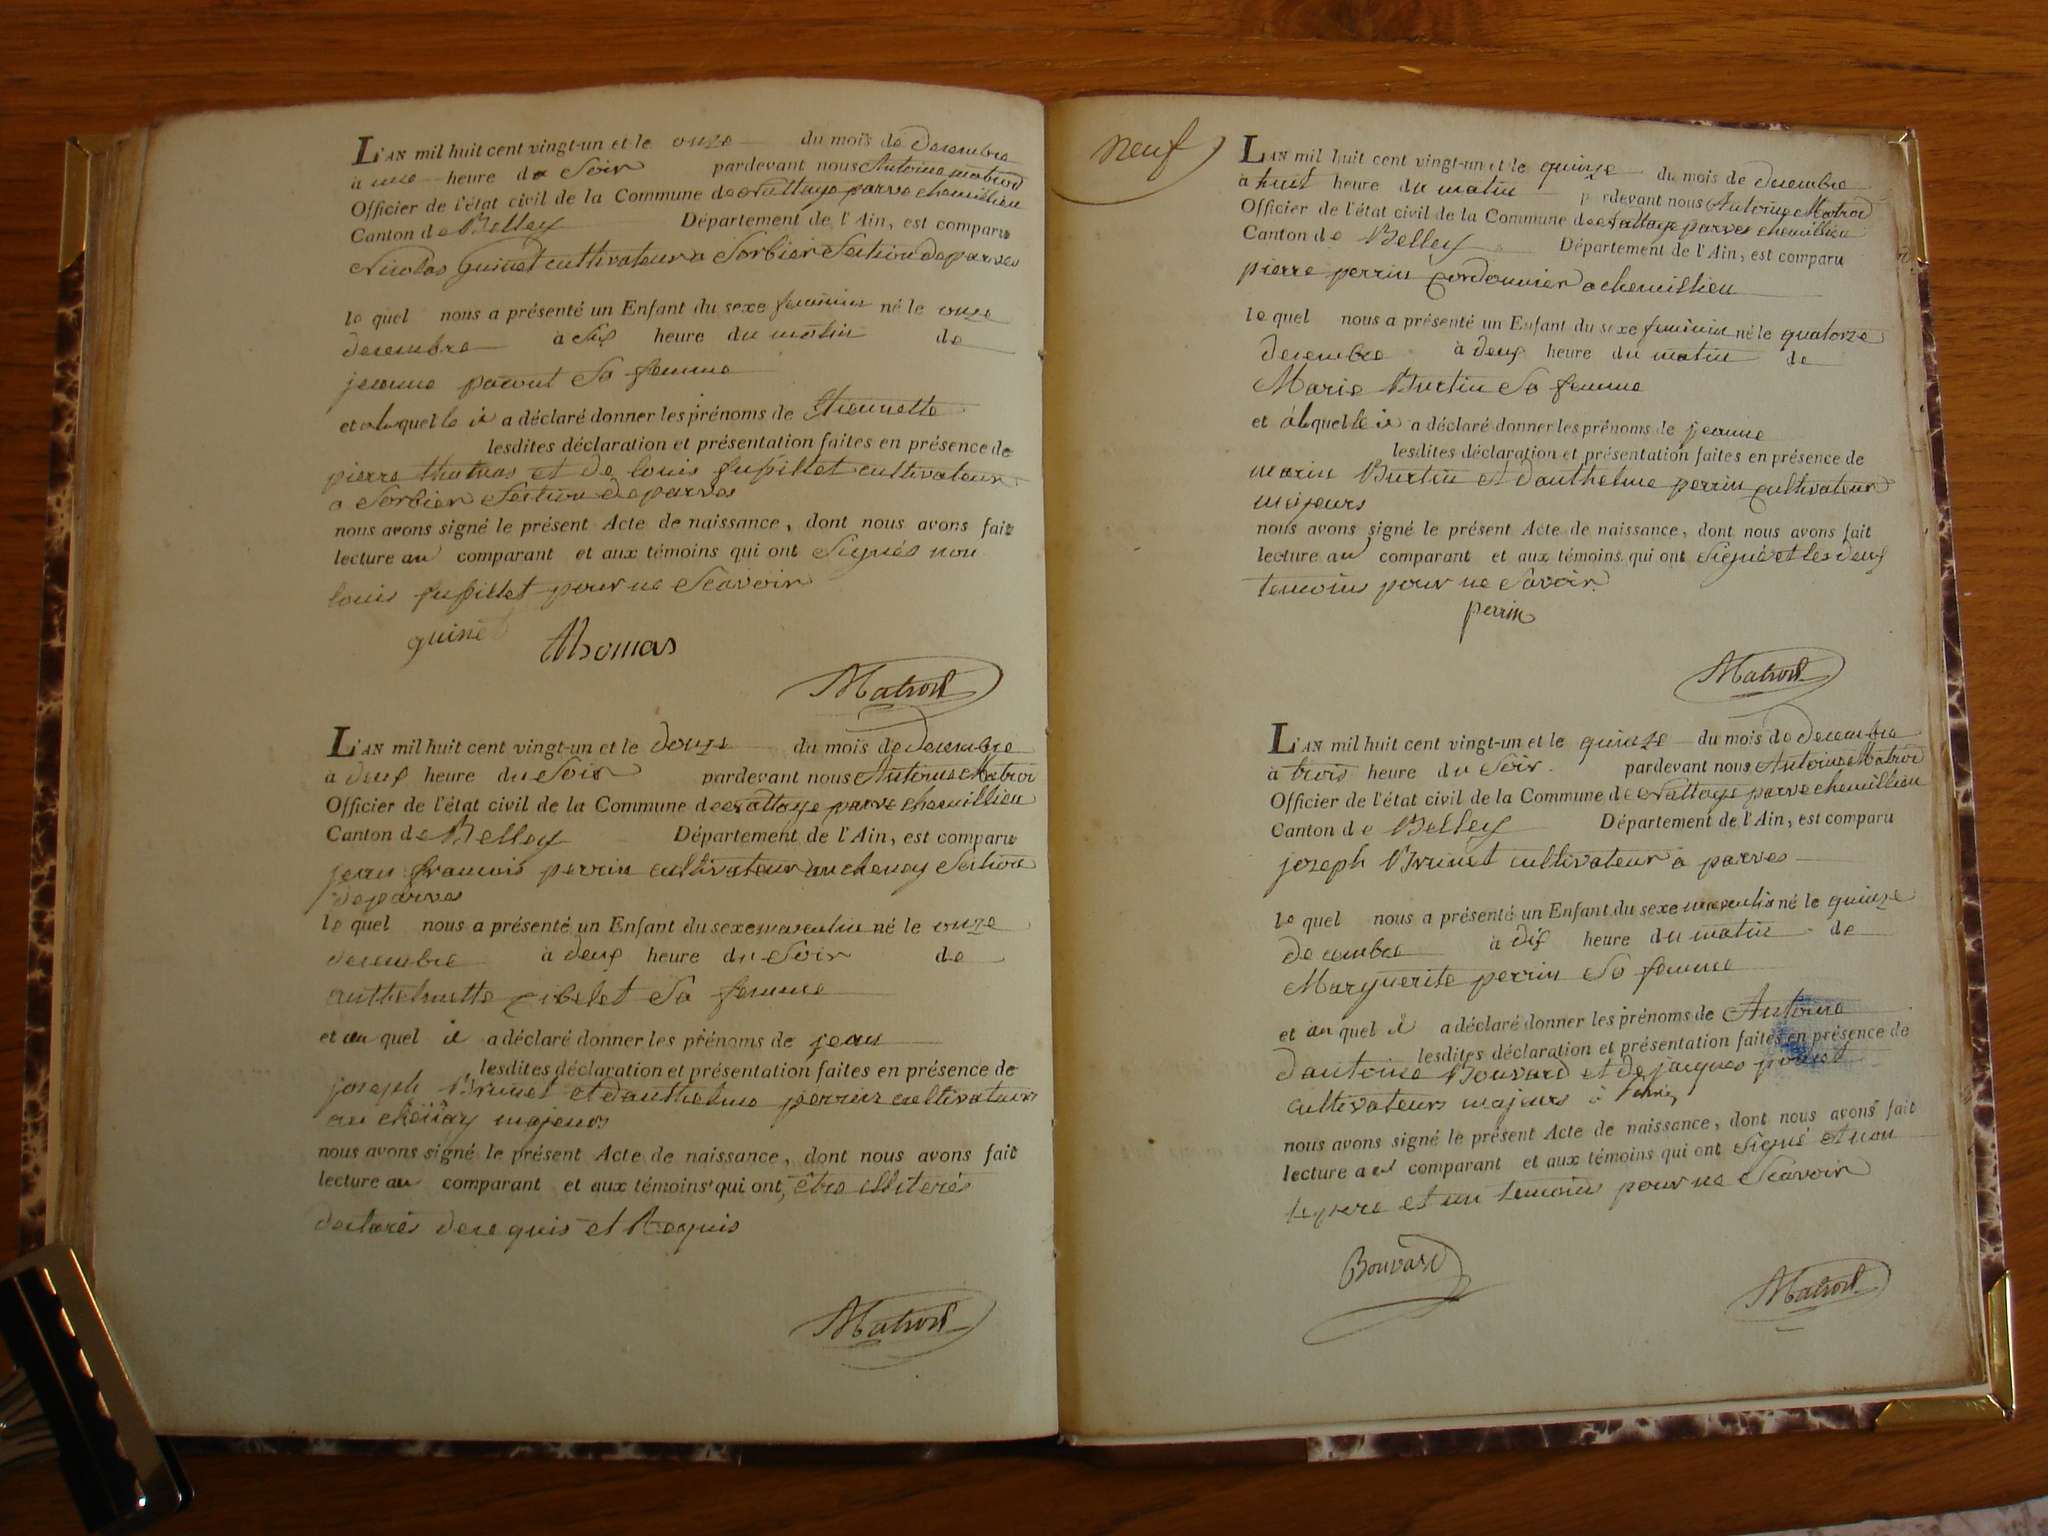 L'AN mil huit cent vingt-un et le onze du mois de decembre
à une heure du Soir pardevant nous Antoine Matrod
Officier de l'état civil de la Commune de Nattage parve chemillieu
Canton de Belley Département de l'Ain, est comparu
Nicolas Guinet cultivateur a Sorbier Section de parves
le quel nous a présenté un Enfant du sexe feminin né le onze
decembre à Six heure du matin de
jeanne parent Sa femme
et a laquelle il a déclaré donner les prénoms de
lesdites déclaration et présentation faites en présence de
pierre thomas et de louis fusillet cultivateur
a Sorbier Section de parves
nous avons signé le présent Acte de naissance, dont nous avons fait
lecture au comparant et aux témoins qui ont Signés non
louis fusillet pour ne Scavoir
guinet Thomas
Matrod
L'AN mil huit cent vingt-un et le douze du mois de Decembre
à deux heure du Soir pardevant nous Antoine Matrod
Officier de l'état civil de la Commune de Nattage parve chemillieu
Canton de Belley Département de l'Ain, est comparu
jean francois perrin cultivateur au chenay Section
de parves
le quel nous a présenté un Enfant du sexe masculin né le onze
decembre à deux heure du Soir de
anthelmette Sa femme
et au quel il a déclaré donner les prénoms de jean
lesdites déclaration et présentation faites en présence de
joseph Brunet et d'anthelme perrin cultivateurs
au chenay majeurs
nous avons signé le présent Acte de naissance, dont nous avons fait
lecture au comparant et aux témoins qui ont être illiterés
declarés de ce quis et Requis
Matrod
neuf
L'AN mil huit cent vingt-un et le quinze du mois de decembre
à huit heure du matin pardevant nous Antoine Matrod
Officier de l'état civil de la Commune de Nattage parves chemillieu
Canton de Belley Département de l'Ain, est comparu
pierre perrin cordonnier a chemillieu
le quel nous a présenté un Enfant du sexe feminin né le quatorze
decembre à deux heure du matin de
Marie Burtin Sa femme
et a laquelle il a déclaré donner les prénoms de jeanne
lesdites déclaration et présentation faites en présence de
marin Burtin et d'anthelme perrin cultivateur
majeurs
nous avons signé le présent Acte de naissance, dont nous avons fait
lecture au comparant et aux témoins qui ont Signé et les deux
temoins pour ne Savoir
perrin
Matrod
L'AN mil huit cent vingt-un et le quinze du mois de Decembre
à trois heure du Soir pardevant nous Antoine Matrod
Officier de l'état civil de la Commune de Nattage parve chemillieu
Canton de Belley Département de l'Ain, est comparu
joseph Brunet cultivateur à parves
le quel nous a présenté un Enfant du sexe masculin né le quinze
Decembre à dix heure du matin de
Marguerite perrin Sa femme
et au quel il a déclaré donner les prénoms de Antoine
lesdites déclaration et présentation faites en présence de
d'antoine Bouvard et de jacques
cultivateurs majeurs à
nous avons signé le présent Acte de naissance, dont nous avons fait
lecture au comparant et aux témoins qui ont Signé et non
le pere et un temoins pour ne Scavoir
Bouvard
Matrod